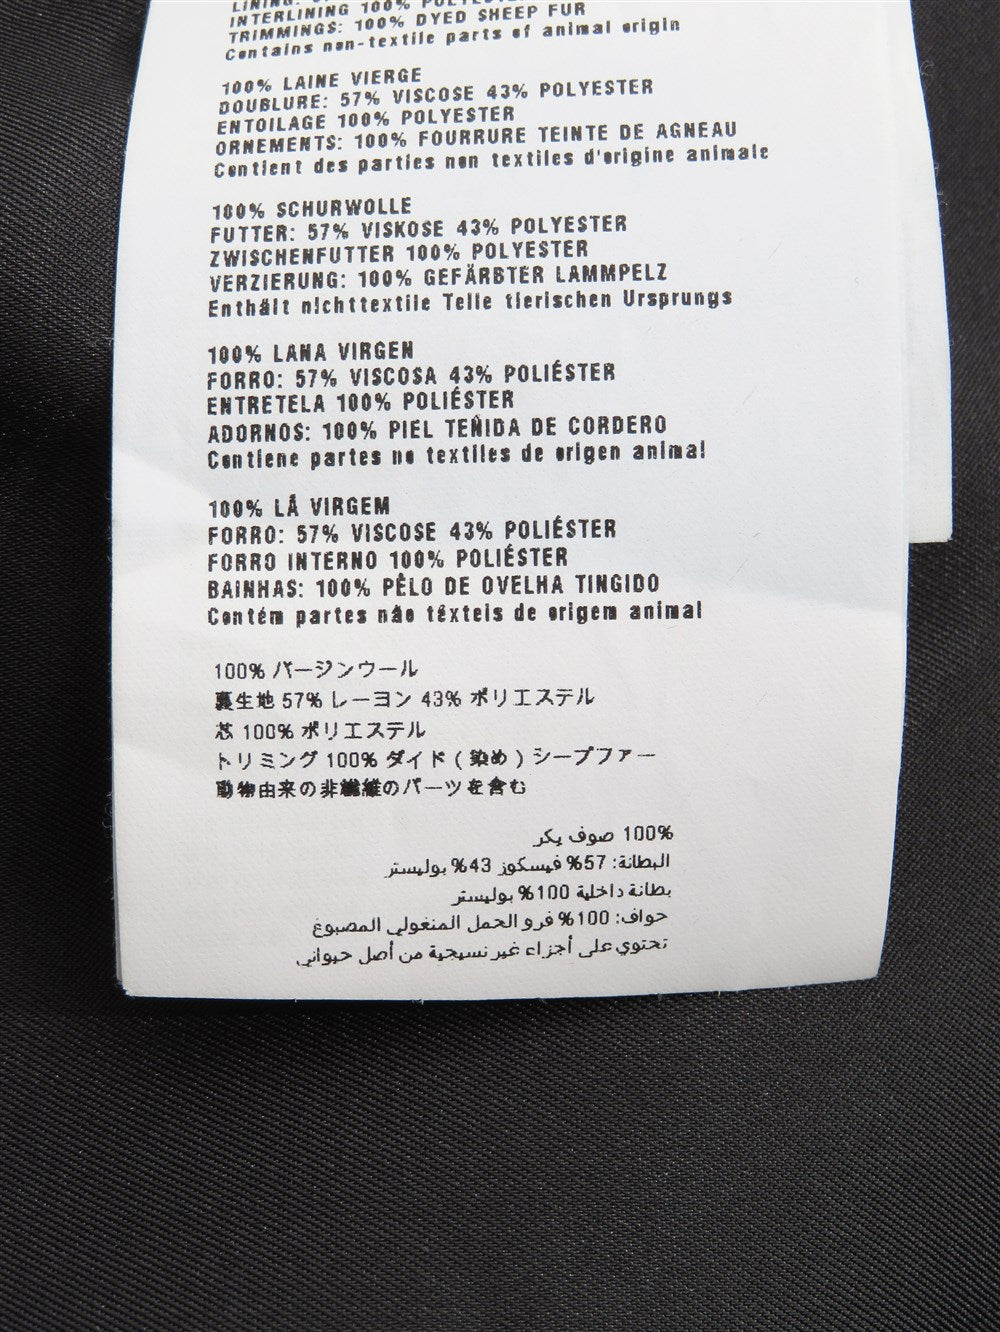 LINING:
INTERLINING 100% POLYESTER
TRIMMINGS: 100% DYED SHEEP FUR
Contains non-textile parts of animal origin
100% LAINE VIERGE
DOUBLURE: 57% VISCOSE 43% POLYESTER
ENTOILAGE 100% POLYESTER
ORNEMENTS: 100% FOURRURE TEINTE DE AGNEAU
Contient des parties non textiles d'origine animale
100% SCHURWOLLE
FUTTER: 57% VISKOSE 43% POLYESTER
ZWISCHENFUTTER 100% POLYESTER
VERZIERUNG: 100% GEFÄRBTER LAMMPELZ
Enthält nichttextile Teile tierischen Ursprungs
100% LANA VIRGEN
FORRO: 57% VISCOSA 43% POLIÉSTER
ENTRETELA 100% POLIÉSTER
ADORNOS: 100% PIEL TEÑIDA DE CORDERO
Contiene partes no textiles de origen animal
100% LÃ VIRGEM
FORRO: 57% VISCOSE 43% POLIÉSTER
FORRO INTERNO 100% POLIÉSTER
BAINHAS: 100% PÊLO DE OVELHA TINGIDO
Contém partes não têxteis de origem animal
100% バージンウール
裏生地 57% レーヨン 43% ポリエステル
芯 100% ポリエステル
トリミング 100% ダイド ( 染め ) シープファー
動物由来の非繊維のパーツを含む
100% صوف يكر
البطانة: 57% فيسكوز 43% بوليستر
بطانة داخلية 100% بوليستر
حواف: 100% فرو الحمل المنغولي المصبوغ
تحتوي على أجزاء غير نسيجية من أصل حيواني